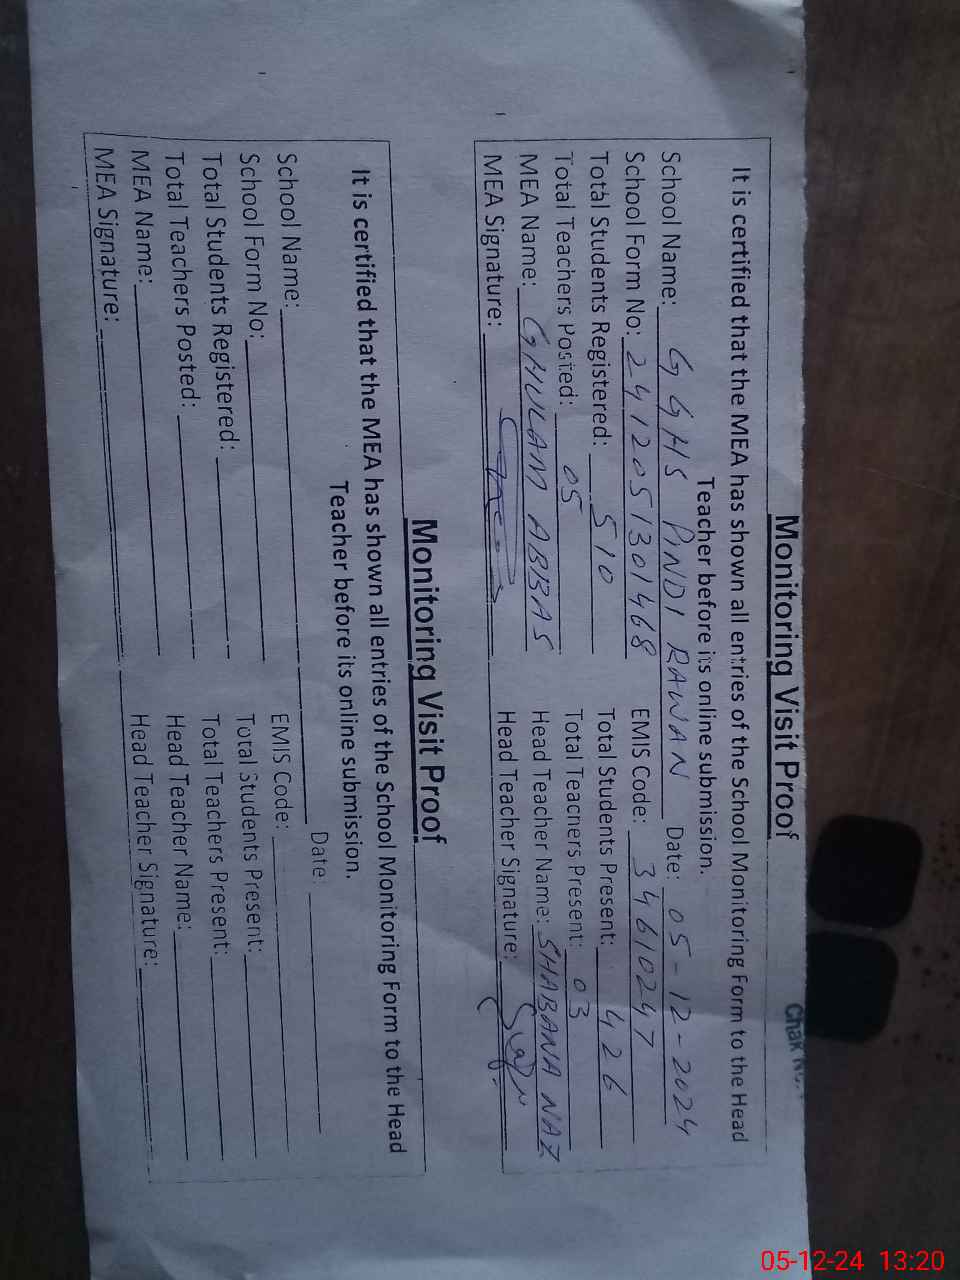 Chak No.
Monitoring Visit Proof
It is certified that the MEA has shown all entries of the School Monitoring Form to the Head
Teacher before its online submission.
School Name: GGHS PINDI RAWAN Date: 05-12-2024
School Form No: 241205130 1468 EMIS Code: 34610247
Total Students Registered: 510 Total Students Present: 426
Total Teachers Posted: 05 Total Teachers Present: 03
MEA Name: GHULAM ABBAS Head Teacher Name: SHABANA NAZ
MEA Signature: Head Teacher Signature:
Monitoring Visit Proof
It is certified that the MEA has shown all entries of the School Monitoring Form to the Head
Teacher before its online submission.
School Name: Date:
School Form No: EMIS Code:
Total Students Registered: Total Students Present:
Total Teachers Posted: Total Teachers Present:
MEA Name: Head Teacher Name:
MEA Signature: Head Teacher Signature:
05-12-24 13:20